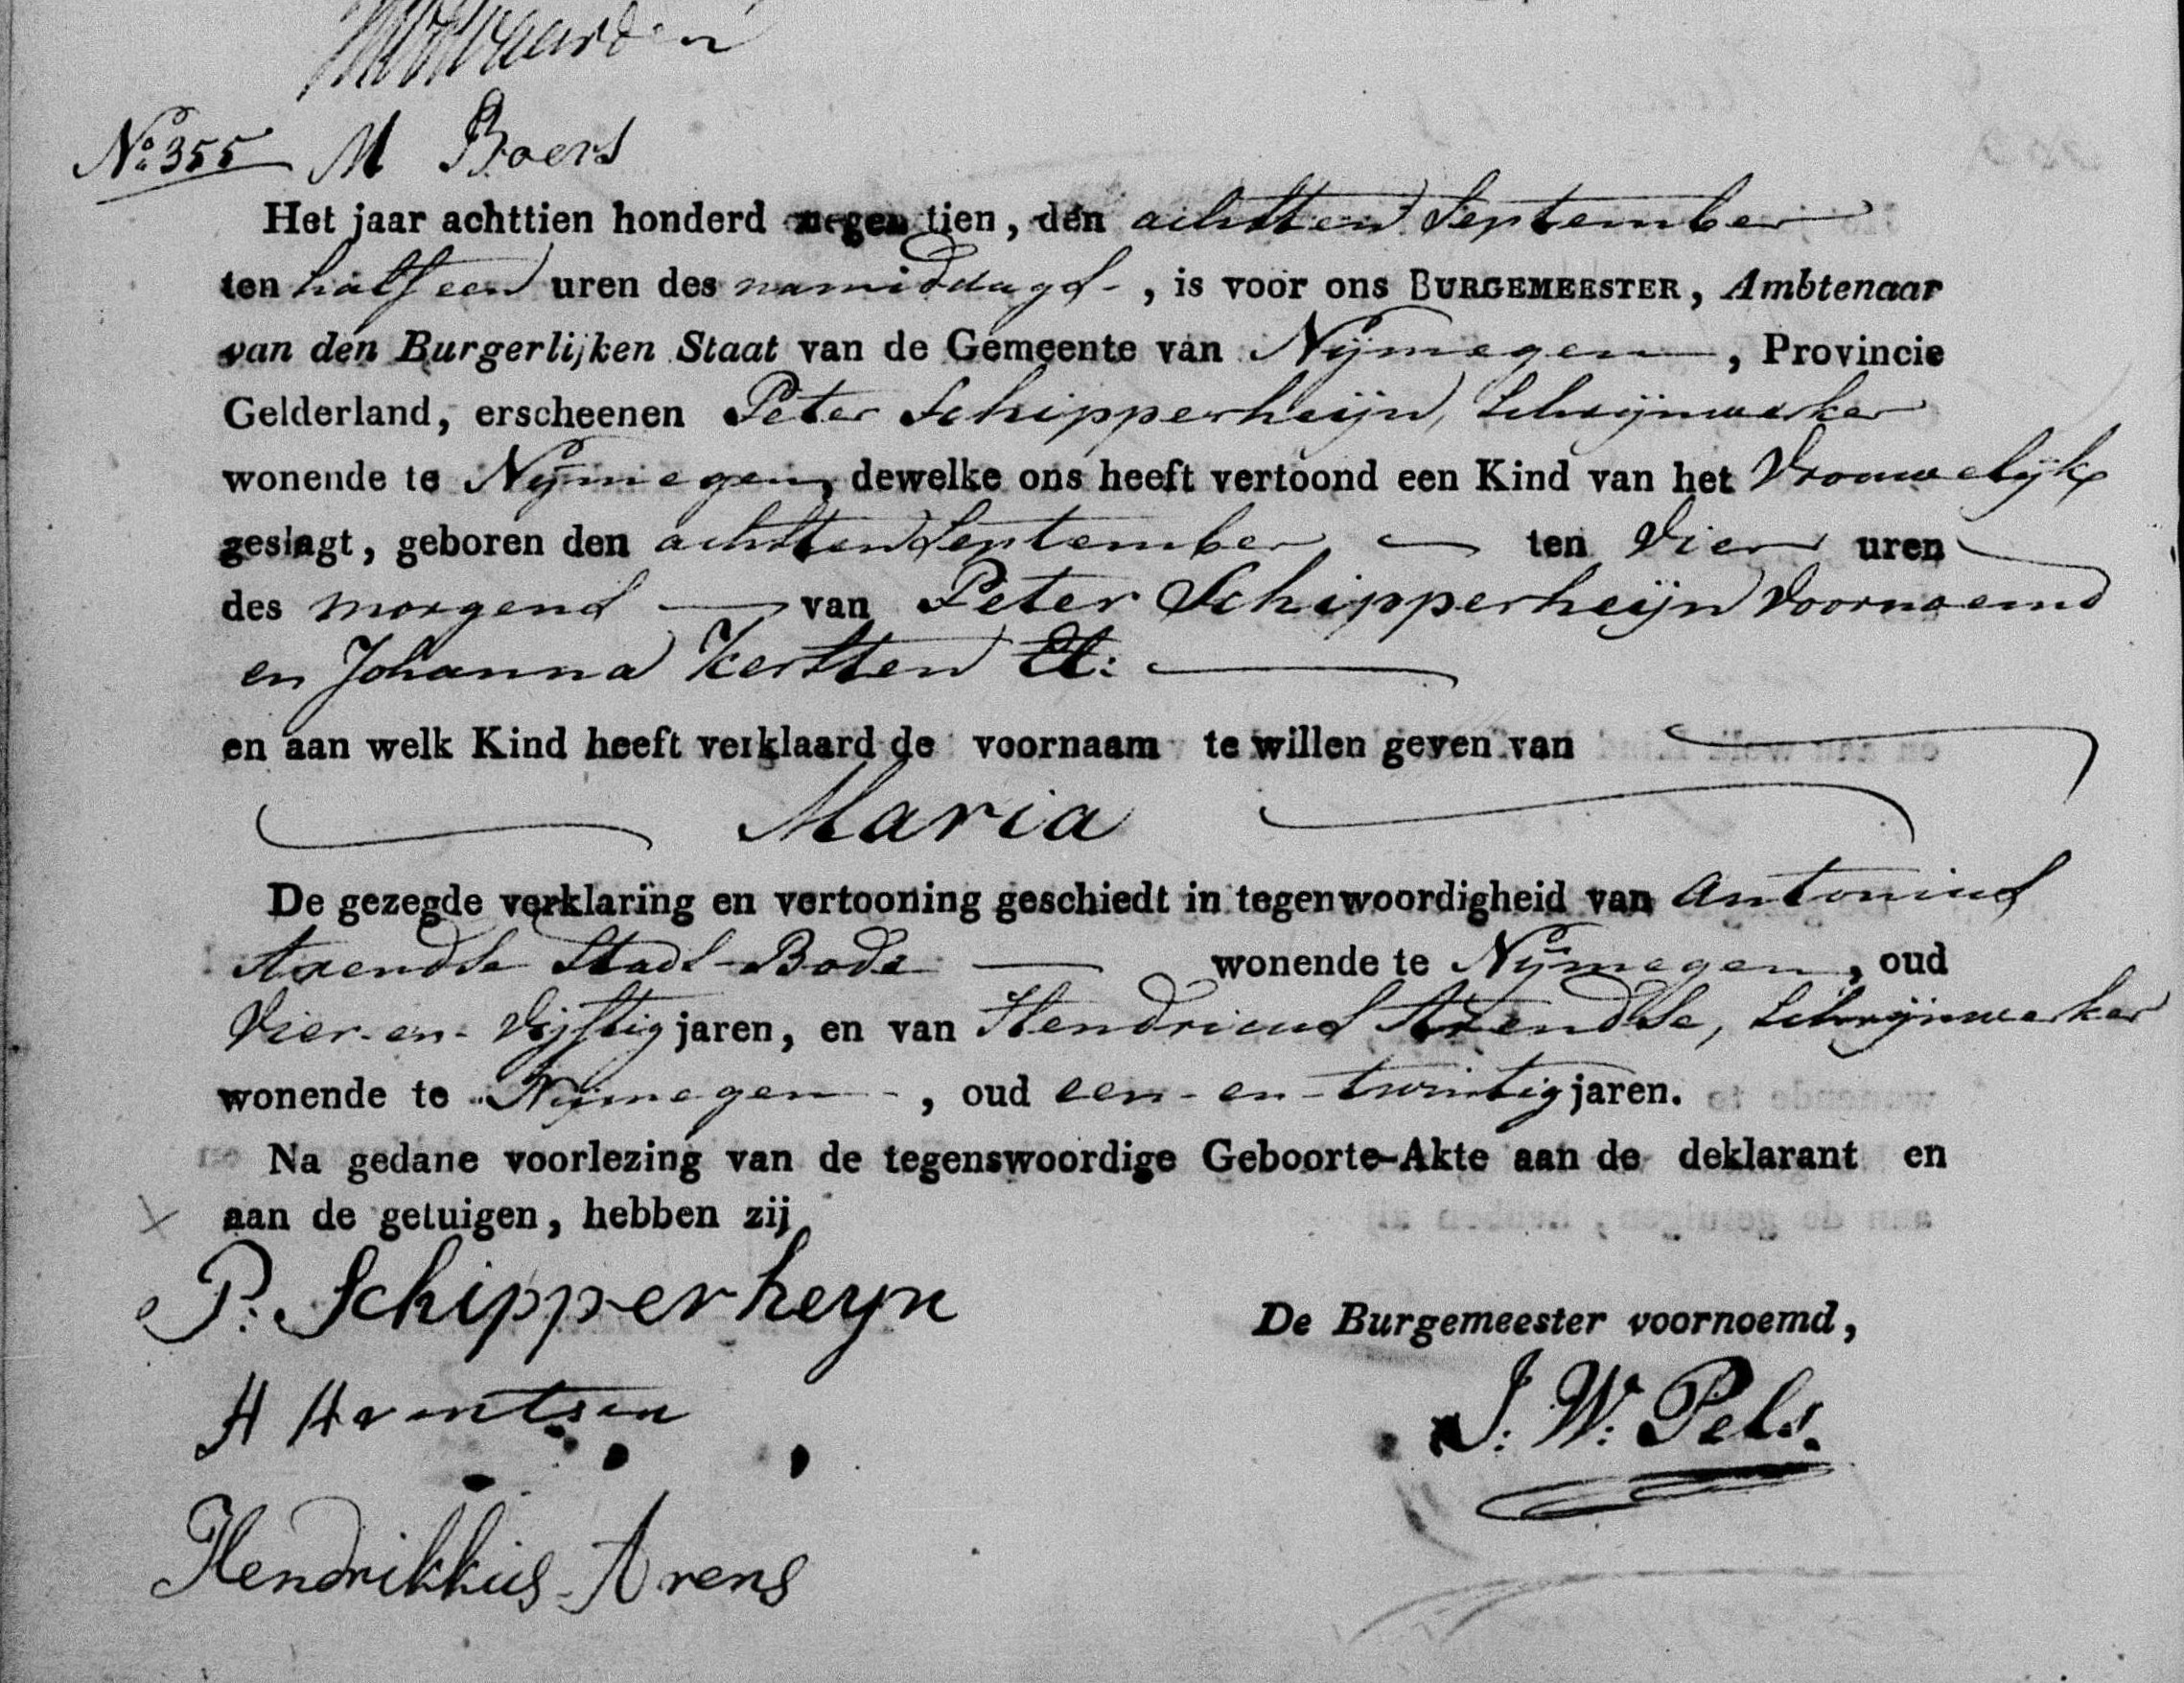 No 355 M Boers
Het jaar achttien honderd negen tien, den achtten September
ten half een uren des namiddags, is voor ons BURGEMEESTER, Ambtenaar
van den Burgerlijken Staat van de Gemeente van Nijmegen, Provincie
Gelderland, erscheenen Peter Schipperheijn, Schrijnwerker
wonende te Nijmegen, dewelke ons heeft vertoond een Kind van het Vrouwelijk
geslagt, geboren den achtten September ten Vier uren
des morgens van Peter Schipperheijn Voornoemd
en Johanna Kersten El:
en aan welk Kind heeft verklaard de voornaam te willen geven van
Maria
De gezegde verklaring en vertooning geschiedt in tegenwoordigheid van Antonius
Arendse Stads-Bode wonende te Nijmegen, oud
Vier-en-Vijftig jaren, en van Hendricus Arendse, Schrijnwerker
wonende te Nijmegen, oud een-en-twintig jaren.
Na gedane voorlezing van de tegenswoordige Geboorte-Akte aan de deklarant en
aan de getuigen, hebben zij
P: Schipperheyn
De Burgemeester voornoemd,
A Arentsen
J: W: Pels.
Hendrikkus Arens